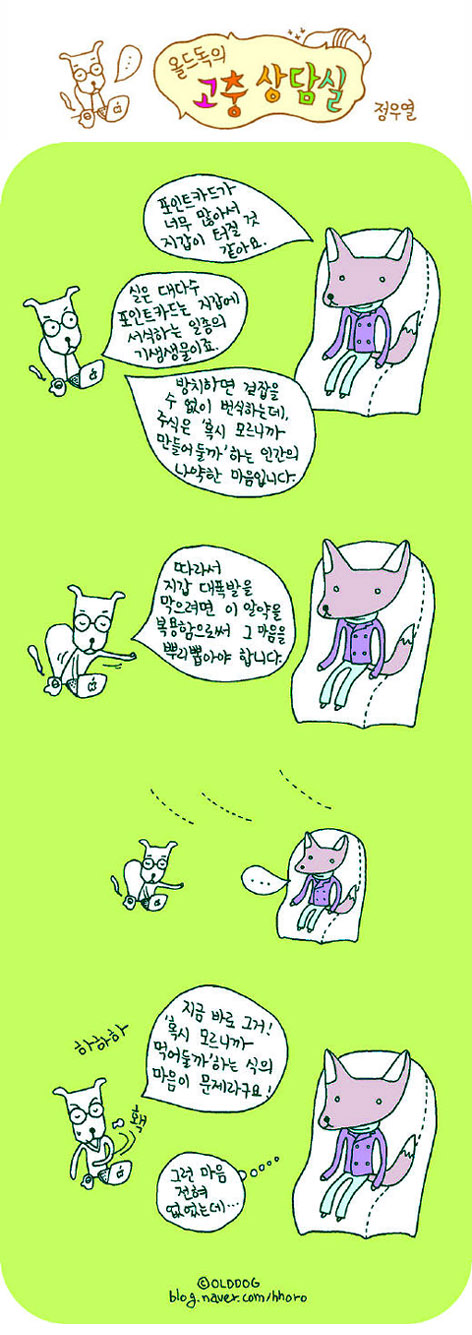 ...
올드독의
고충 상담실
정우열
포인트카드가
너무 많아서
지갑이 터질 것
같아요.
실은 대다수
포인트카드는 지갑에
서식하는 일종의
기생생물이죠.
방치하면 걷잡을
수 없이 번식하는데,
주식은 '혹시 모르니까
만들어둘까'하는 인간의
나약한 마음입니다.
따라서
지갑 대폭발을
막으려면 이 알약을
복용함으로써 그 마음을
뿌리뽑아야 합니다.
...
하하하
지금 바로 그거!
'혹시 모르니까
먹어둘까'하는 식의
마음이 문제라구요!
홱
그런 마음
전혀
없었는데...
©OLDDOG
blog.naver.com/hhoro